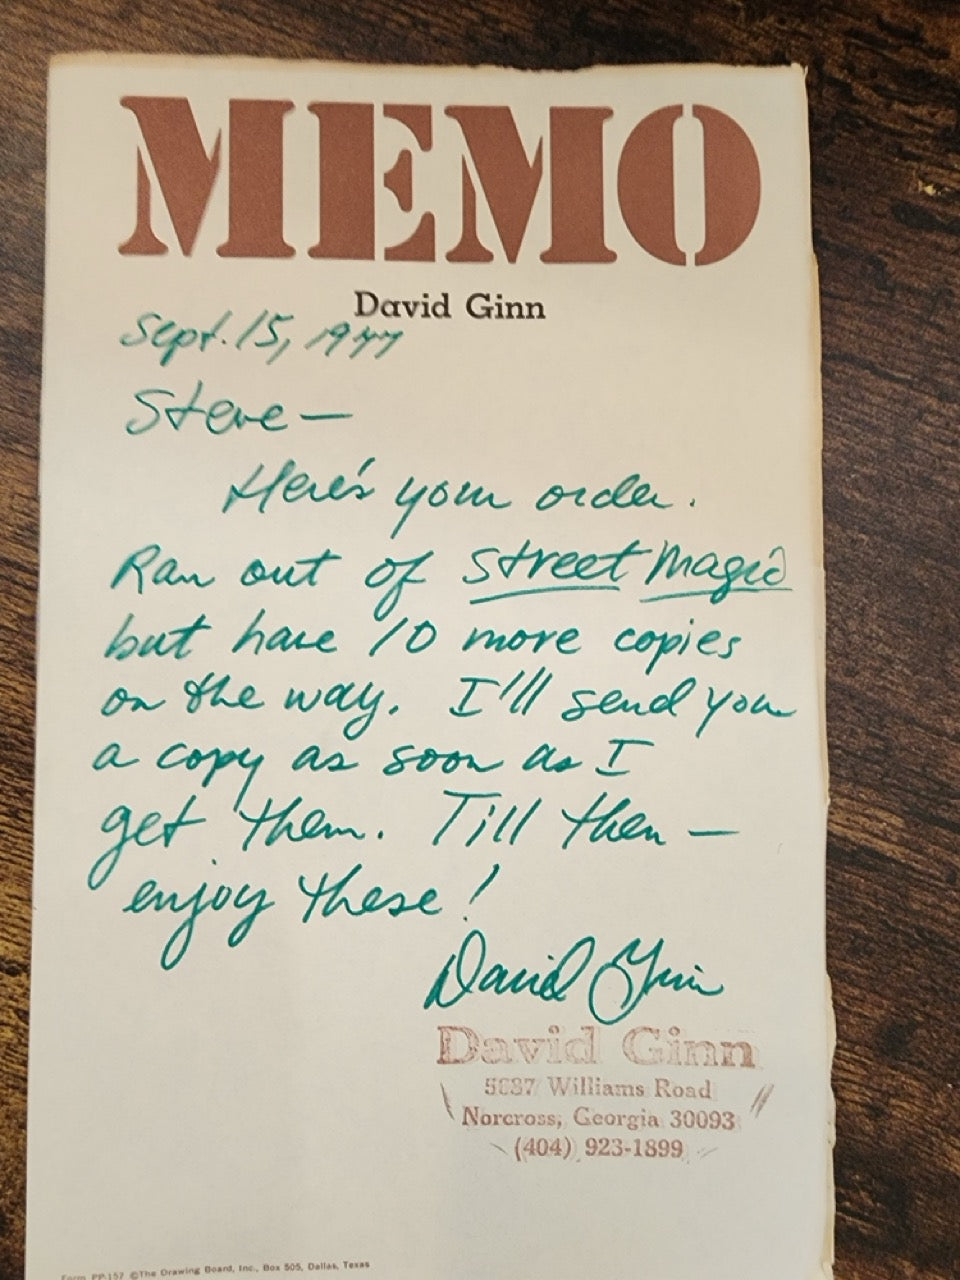 MEMO
David Ginn
Sept. 15, 1977
Steve —
Here's your order.
Ran out of Street Magic
but have 10 more copies
on the way. I'll send you
a copy as soon as I
get them. Till then —
enjoy these!
David Ginn
David Ginn
5687 Williams Road
Norcross, Georgia 30093
(404) 923-1899
Form PP-157 ©The Drawing Board, Inc., Box 505, Dallas, Texas